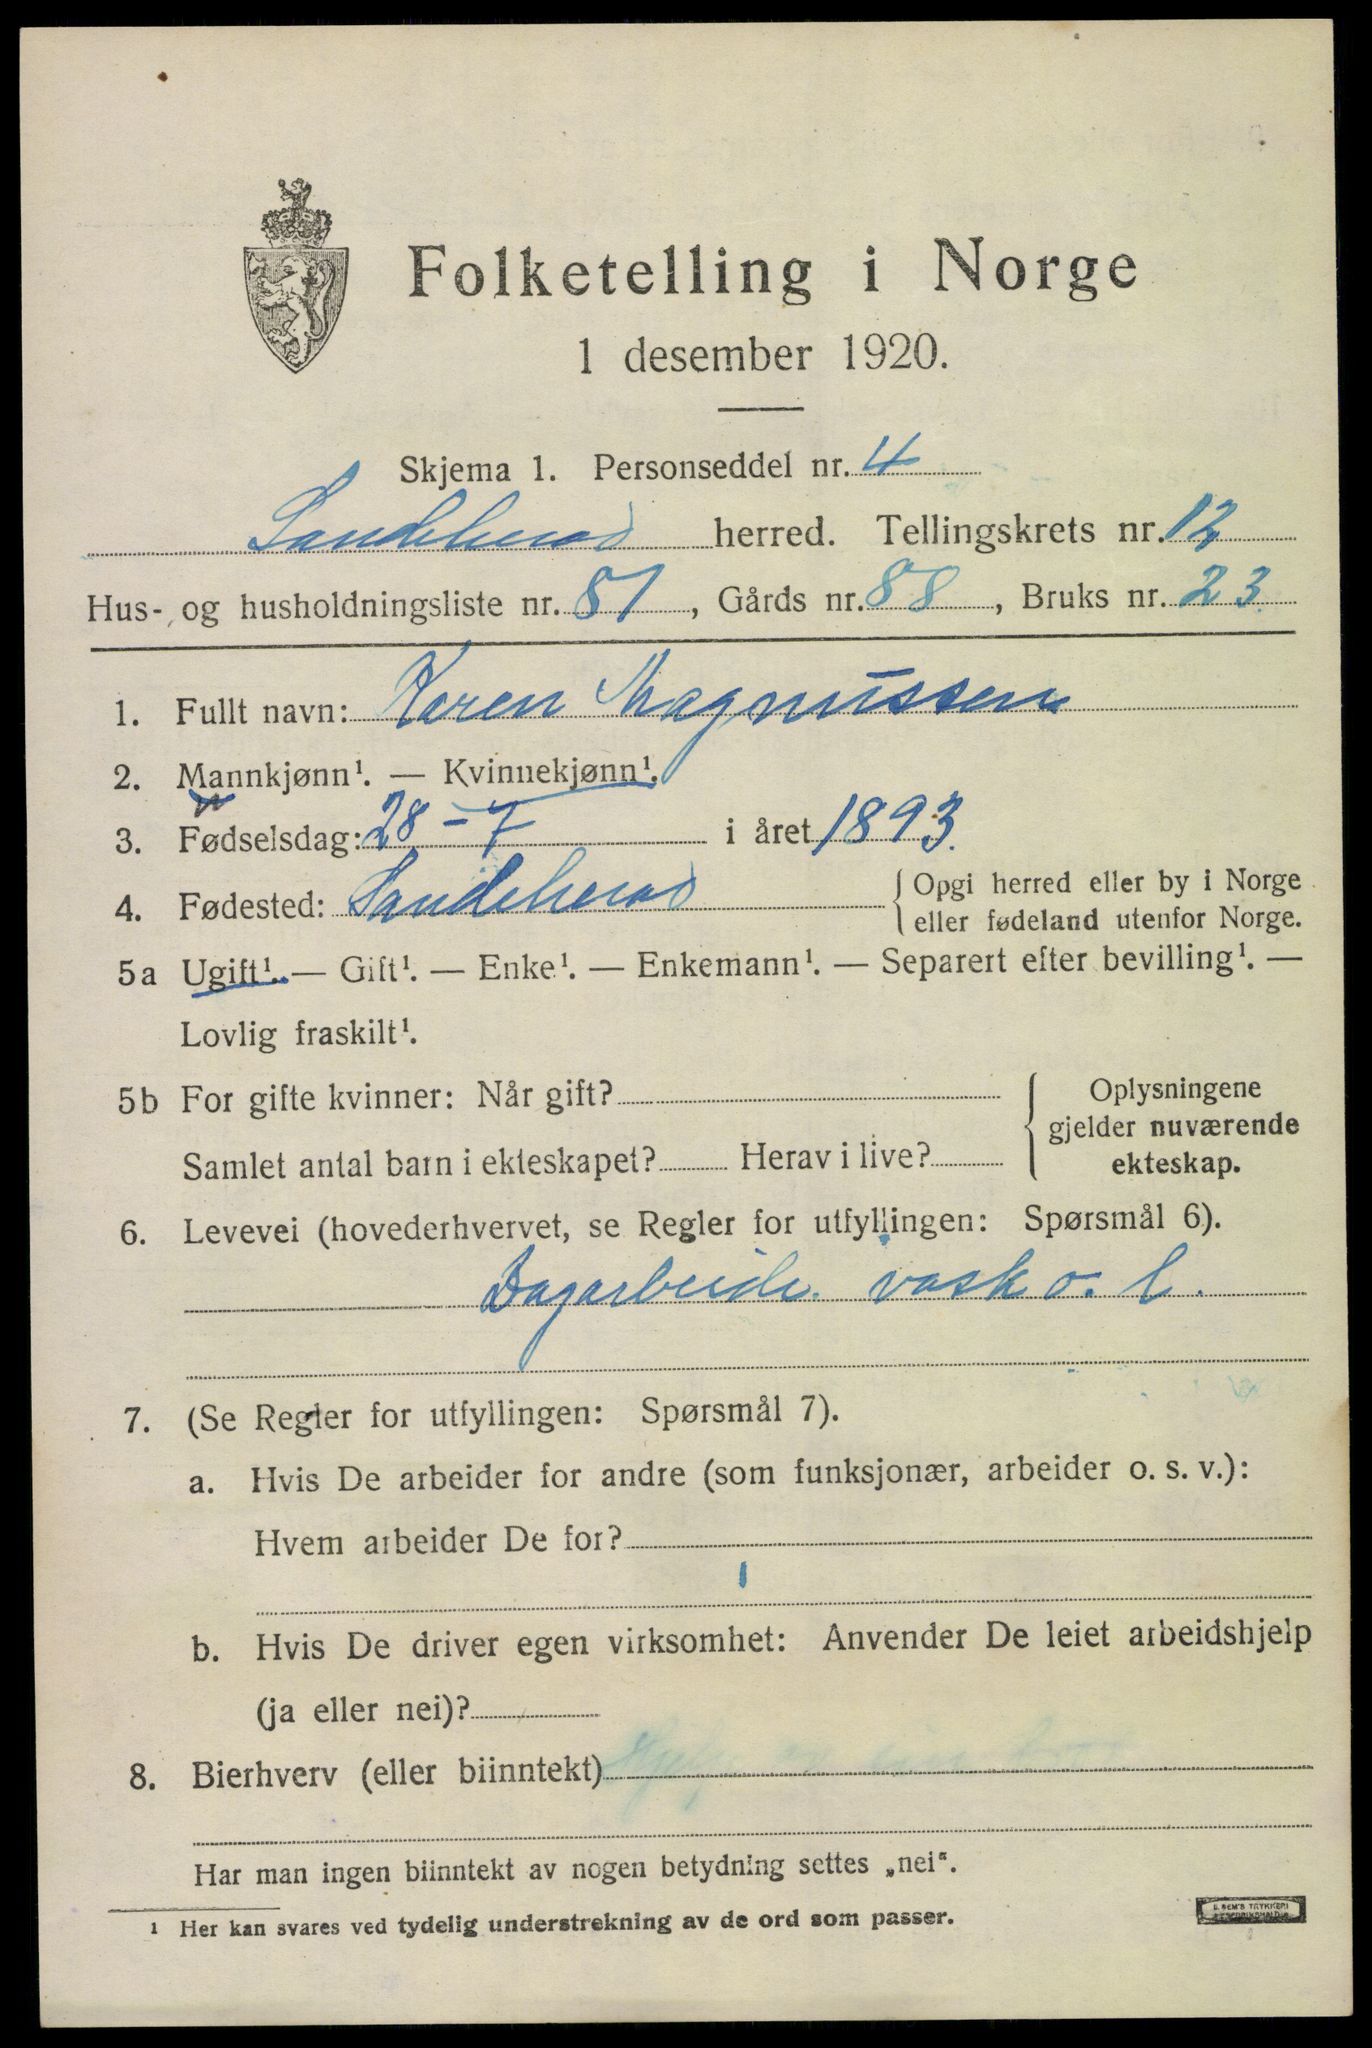 Folketelling i Norge
1 desember 1920.
Skjema 1. Personseddel nr. 4
Sandeherad herred. Tellingskrets nr. 12
Hus- og husholdningsliste nr. 81, Gårds nr. 88, Bruks nr. 23.
1. Fullt navn: Karen Magnussen
2. Mannkjønn¹. — Kvinnekjønn¹.
3. Fødselsdag: 28 - 7 i året 1893.
4. Fødested: Sandeherad { Opgi herred eller by i Norge
eller fødeland utenfor Norge.
5a Ugift¹. — Gift¹. — Enke¹. — Enkemann¹. — Separert efter bevilling¹. —
Lovlig fraskilt¹.
5b For gifte kvinner: Når gift?
Samlet antal barn i ekteskapet? Herav i live?
{ Oplysningene
gjelder nuværende
ekteskap.
6. Levevei (hovederhvervet, se Regler for utfyllingen: Spørsmål 6).
Dagarbeide. vask o. l.
7. (Se Regler for utfyllingen: Spørsmål 7).
a. Hvis De arbeider for andre (som funksjonær, arbeider o. s. v.):
Hvem arbeider De for?
b. Hvis De driver egen virksomhet: Anvender De leiet arbeidshjelp
(ja eller nei)?
8. Bierhverv (eller biinntekt)
Har man ingen biinntekt av nogen betydning settes „nei“.
¹ Her kan svares ved tydelig understrekning av de ord som passer.